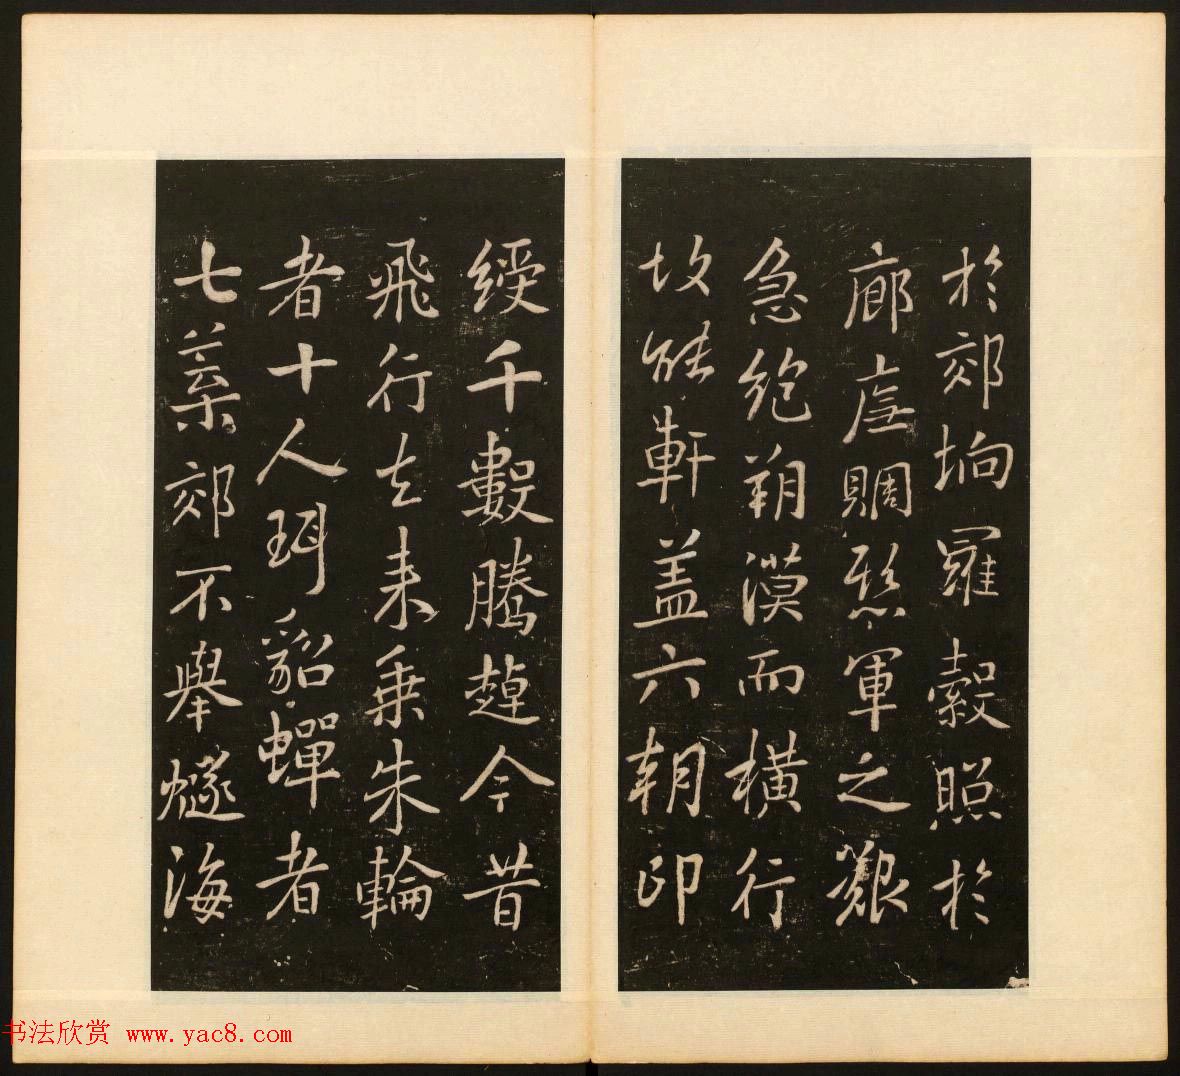 於郊坰羅縠照於
廊虛賙懸軍之艱
急絶朔漠而橫行
故能軒蓋六朝印
綬千數騰趠今昔
飛行去来乗朱輪
者十人珥貂蟬者
七葉郊不舉燧海
书法欣赏 www.yac8.com